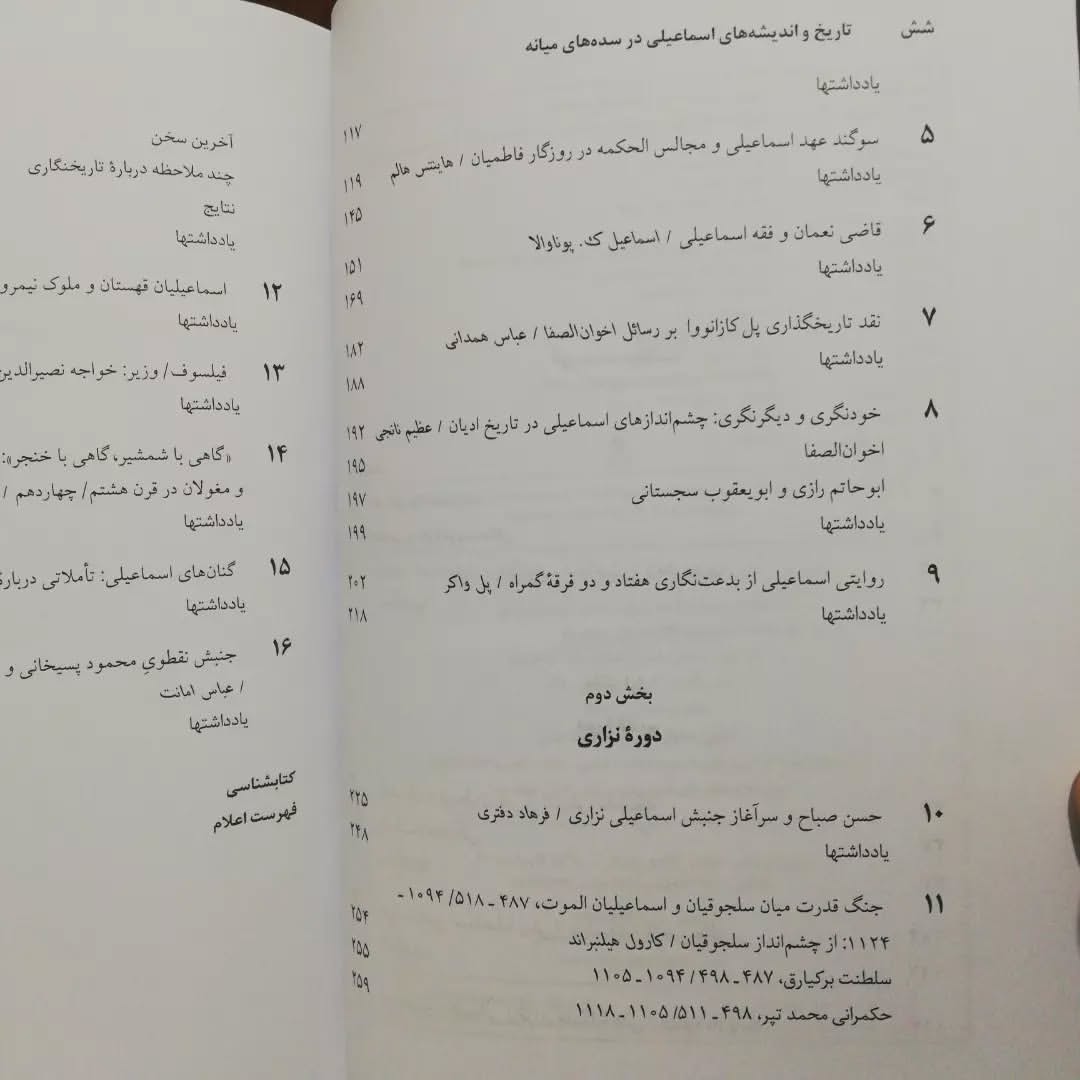 شش تاریخ و اندیشه‌های اسماعیلی در سده‌های میانه
یادداشتها ۱۱۷
۵ سوگند عهد اسماعیلی و مجالس الحکمه در روزگار فاطمیان / هاینتس هالم ۱۱۹
یادداشتها ۱۴۵
۶ قاضی نعمان و فقه اسماعیلی / اسماعیل ک. پوناوالا ۱۵۱
یادداشتها ۱۶۹
۷ نقد تاریخگذاری پل کازانووا بر رسائل اخوان‌الصفا / عباس همدانی ۱۸۲
یادداشتها ۱۸۸
۸ خودنگری و دیگرنگری: چشم‌اندازهای اسماعیلی در تاریخ ادیان / عظیم نانجی ۱۹۲
اخوان‌الصفا ۱۹۵
ابوحاتم رازی و ابویعقوب سجستانی ۱۹۷
یادداشتها ۱۹۹
۹ روایتی اسماعیلی از بدعت‌نگاری هفتاد و دو فرقهٔ گمراه / پل واکر ۲۰۲
یادداشتها ۲۱۸
بخش دوم
دورهٔ نزاری
۱۰ حسن صباح و سرآغاز جنبش اسماعیلی نزاری / فرهاد دفتری ۲۲۵
یادداشتها ۲۴۸
۱۱ جنگ قدرت میان سلجوقیان و اسماعیلیان الموت، ۴۸۷ ـ ۵۱۸/ ۱۰۹۴ ـ
۱۱۲۴: از چشم‌انداز سلجوقیان / کارول هیلنبراند ۲۵۴
سلطنت برکیارق، ۴۸۷ ـ ۴۹۸ / ۱۰۹۴ ـ ۱۱۰۵ ۲۵۵
حکمرانی محمد تپر، ۴۹۸ ـ ۵۱۱/ ۱۱۰۵ ـ ۱۱۱۸ ۲۵۹
آخرین سخن
چند ملاحظه دربارهٔ تاریخنگاری
نتایج
یادداشتها
۱۲ اسماعیلیان قهستان و ملوک نیمرو
یادداشتها
۱۳ فیلسوف/ وزیر: خواجه نصیرالدین
یادداشتها
۱۴ «گاهی با شمشیر، گاهی با خنجر»:
و مغولان در قرن هشتم/ چهاردهم /
یادداشتها
۱۵ گنان‌های اسماعیلی: تأملاتی دربارهٔ
یادداشتها
۱۶ جنبش نقطویِ محمود پسیخانی و
/ عباس امانت
یادداشتها
کتابشناسی
فهرست اعلام